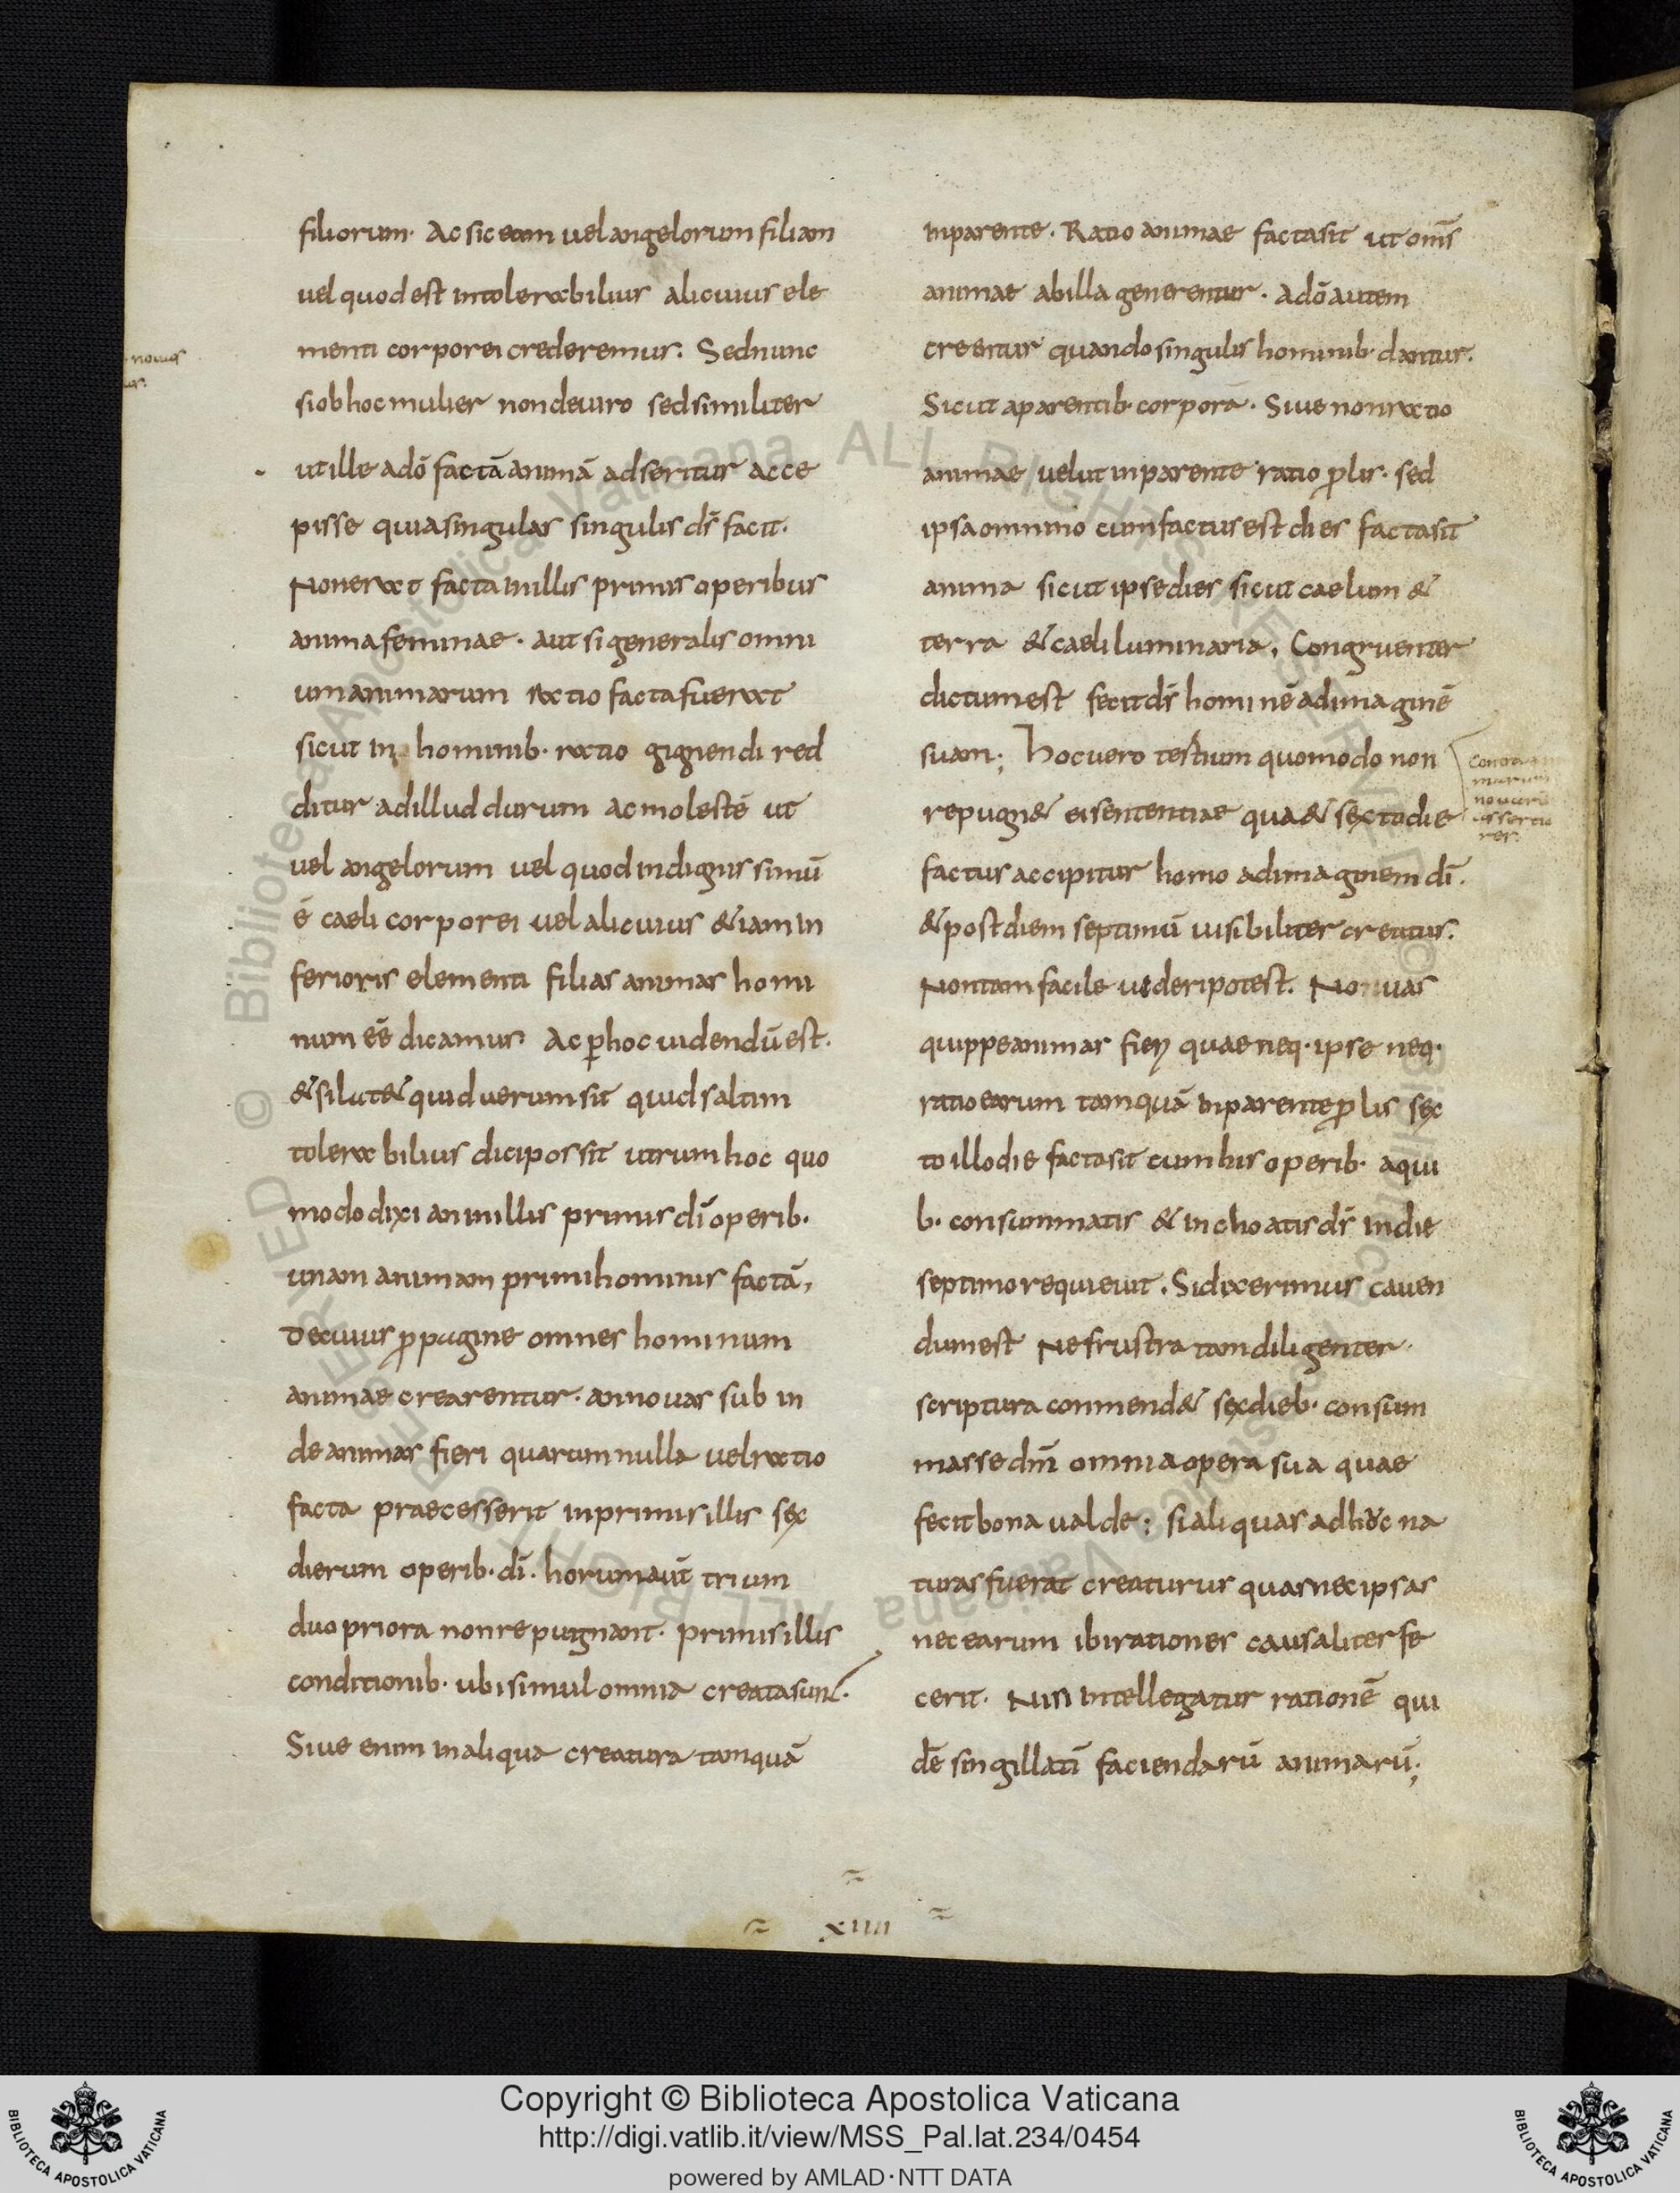 filiorum· Ac sic eam uel angelorum filiam
uel quod est intolerabilius alicuius ele
menti corporei crederemus. Sed nunc
si ob hoc mulier non de uiro sed similiter
ut ille a dō factā animā adseritur acce
pisse quia singulas singulis dš facit.
Non erat facta in illis primis operibus
anima feminae. aut si generalis omni
um animarum ratio facta fuerat
sicut in hominib· ratio gignendi red
ditur ad illud durum ac molestē ut
uel angelorum uel quod indignissimū
ē caeli corporei uel alicuius &iam in
ferioris elementi filias animas homi
num eē dicamus Ac p̱ hoc uidendū est.
& si lat& quid uerum sit quid saltim
tolerabilius dici possit utrum hoc quo
modo dixi an in illis primis dī operib·
unam animam primi hominis factā,
De cuius ꝓpagine omnes hominum
animae crearentur· an nouas sub in
de animas fieri quarum nulla uel ratio
facta praecesserit in primis illis sex
dierum operib· dī. horum aūt trium
duo priora non repugnant· primis illis
conditionib· ubi simul omnia creata sunt·
Siue enim in aliqua creatura tamquā
in parente. Ratio animae facta sit ut omīs
animae ab illa generentur. A dō autem
creentur quando singulis hominib· dantur.
Sicut a parentib· corpora. Siue non ratio
animae uelut in parente ratio ꝓlis· sed
ipsa omnino cum factus est dies facta sit
anima sicut ipse dies sicut caelum &
terra & caeli luminaria. Congruenter
dictum est fecit dš hominē ad imaginē
suam; Hoc uero testium quomodo non
repugn& ei sententiae qua & sexto die
factus accipitur homo ad imaginem dī.
& post diem septimū uisibiliter creatus.
Non tam facile uideri potest. Nouas
quippe animas fieri quae neq· ipse neq·
ratio earum tamquā in parente ꝓlis sex
to illo die facta sit cum his operib· a qui
b· consummatis & inchoatis dš in die
septimo requieuit. Si dixerimus cauen
dum est Ne frustra tam diligenter
scriptura commend& sex dieb· consum
masse dm̄ omnia opera sua quae
fecit bona ualde; si aliquas adhuc na
turas fuerat creaturus quas nec ipsas
nec earum ibi rationes causaliter fe
cerit. Nisi intellegatur rationē qui
dē singillatī faciendarū animarū;
nouas
xiiii
Copyright © Biblioteca Apostolica Vaticana
http://digi.vatlib.it/view/MSS_Pal.lat.234/0454
powered by AMLAD·NTT DATA
BIBLIOTECA APOSTOLICA VATICANA
BIBLIOTECA APOSTOLICA VATICANA